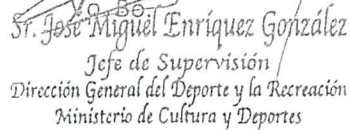 Vo. Bo.
Sr. José Miguel Enríquez González
Jefe de Supervisión
Dirección General del Deporte y la Recreación
Ministerio de Cultura y Deportes